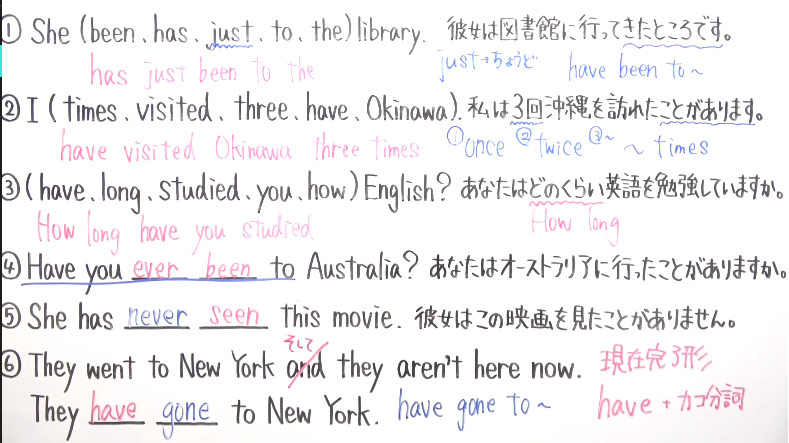 ① She (been、has、just、to、the) library. 彼女は図書館に行ってきたところです。
has just been to the just→ちょうど have been to~
② I (times、visited、three、have、Okinawa). 私は3回沖縄を訪れたことがあります。
have visited Okinawa three times ①once ②twice ③~ ~ times
③ (have、long、studied、you、how) English? あなたはどのくらい英語を勉強していますか。
How long have you studied How long
④ Have you ever been to Australia? あなたはオーストラリアに行ったことがありますか。
⑤ She has never seen this movie. 彼女はこの映画を見たことがありません。
そして
⑥ They went to New York and they aren't here now. 現在完了形
They have gone to New York. have gone to~ have + カコ分詞